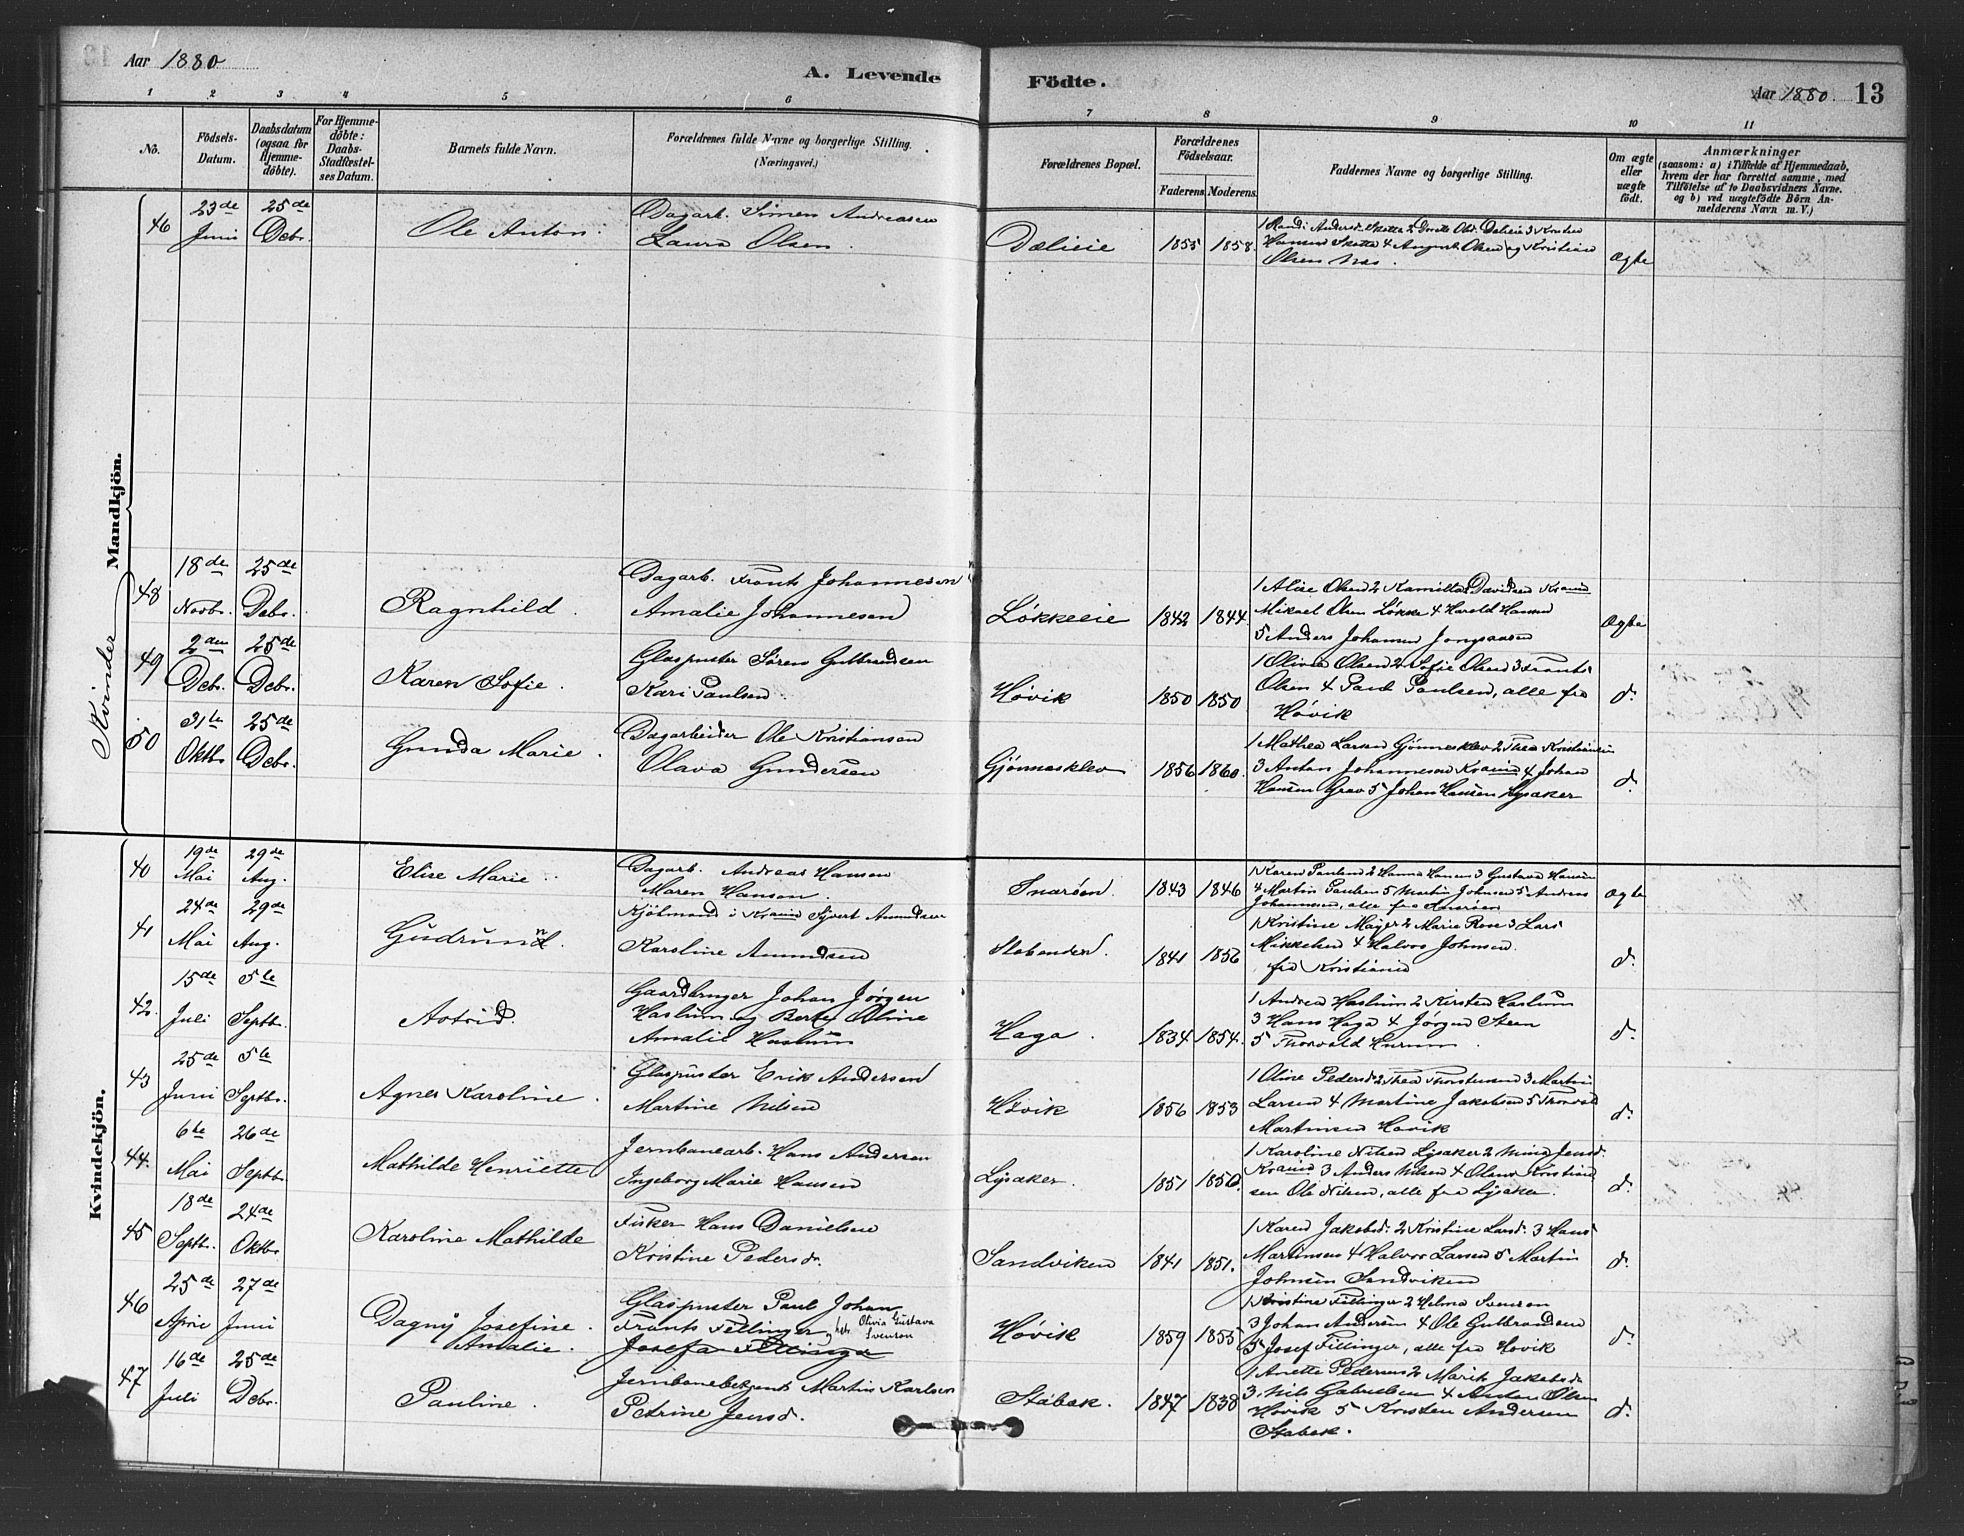 Aar 1880
A. Levende Födte.
Aar 1880. 13
1 2 3 4 5 6 7 8 9 10 11
No.
Födsels-Datum.
Daabsdatum (ogsaa for Hjemmedöbte).
For Hjemmedöbte: Daabs-Stadfæstelses Datum.
Barnets fulde Navn.
Forældrenes fulde Navne og borgerlige Stilling.
(Næringsvei.)
Forældrenes Bopæl.
Forældrenes Födselsaar.
Faderens. Moderens.
Faddernes Navne og borgerlige Stilling.
Om ægte eller uægte födt.
Anmærkninger
(saasom: a) i Tilfælde af Hjemmedaab,
hvem der har forrettet samme, med
Tilföielse af to Daabsvidners Navne.
og b) ved uægtefödte Börn Anmelderens Navn m. V.)
Mandkjön.
46 23de Juni 25de Debr. Ole Anton Dagarb. Simen Andreasen
Laura Olsen. Dælieie 1855 1858. Ægte
Kvinder
48 18de Novbr. 25de Debr. Ragnhild. Dagarb. Frants Johannesen
Amalie Johannesen Løkkeeie 1842 1844. 1 Alise Olsen 2 Kamilla Davidsen
Mikael Olsen Løkke 4 Harold Hansen
5 Anders Johansen Ægte
49 2den Debr. 25de Debr. Karen Sofie. Glaspuster Søren Gulbrandsen
Kari Paulsen. Høvik 1850 1850 1 Olivia Olsen 2 Sofie Olsen 3 Frants
Olsen 4 Paul Paulsen, alle fra
Høvik d.
50 31te Oktbr. 25de Debr. Gunda Marie. Dagarbeider Ole Kristiansen
Olava Gundersen Gjønnesklev 1856 1860. 1 Mathea Larsen Gjønnesklev 2 Thea Kristiansen
3 Anton Johannesen 4 Johan
Hansen Grav 5 Johan Hansen Lysaker d.
Kvindekjön.
40 19de Mai 29de Aug. Elise Marie. Dagarb. Andreas Hansen
Maren Hansen. Snarøen. 1843 1846 1 Karen Paulsen 2 Hanna Hansen 3 Gustava Hansen
4 Martin Paulsen 5 Martin Johnsen 5 Andreas
Johannesen, alle fra Snarøen Ægte
41 24de Mai 29de Aug. Gudrund. Sjvert Amundsen
Karoline Amundsen Stabenden. 1841 1856 1 Kristine Majer 2 Marie Rose 3 Lars
Mikkelsen 4 Halvor Johnsen.
fra Kristiania d.
42. 15de Juli 5te Septbr. Astrid. Gaardbruger Johan Jørgen
Haslum og Berte Oline
Amalie Haslum Haga. 1834 1854. 1 Andrea Haslum 2 Kirsten Haslum
3 Hans Haga 4 Jørgen Steen
5 Thorvald Hurum. d.
43 25de Juni 5te Septbr. Agnes Karoline. Glaspuster Erik Andersen
Martine Nilsen Høvik 1856 1853 1 Oline Pedersd. 2 Thea Thorstensen 3 Martin
Larsen 4 Martine Jakobsen 5 Thorvald
Martinsen Høvik d.
44. 6te Mai 26de Septbr. Mathilde Henriette Jernbanearb. Hans Andersen
Ingeborg Marie Hansen Lysaker. 1851 1856. 1 Karoline Nilsen Lysaker 2 Mina Jensd.
3 Anders Nilsen 4 Olaus Kristiansen
Ole Nilsen, alle fra Lysaker. d.
45 18de Septbr. 24de Oktbr. Karoline Mathilde Fisker Hans Danielsen
Kristine Pedersd. Sandviken 1841 1851. 1 Karen Jakobsd. 2 Kristine Larsd. 3 Hans
Martinsen 4 Halvor Larsen 5 Martin
Johnsen Sandviken d.
46 25de April 27de Juni Dagny Josefine Amalie. Glaspuster Paul Johan
Frants Fillinger Olivia Gustava Svenson
Josefa Fillinger Høvik 1859 1855 1 Kristine Fillinger 2 Helma Svenson
3 Johan Andersen 4 Ole Gulbrandsen
5 Josef Fillinger, alle fra Høvik d.
47 16de Juli 25de Debr. Pauline. Jernbanebetjent Martin Karlsen
Petrine Jensd. Stabæk. 1847 1838 1 Anette Pedersen 2 Marit Jakobsd.
3 Nils Gabrielsen 4 Anton Olsen
Høvik 5 Kristen Andersen
Stabæk. d.